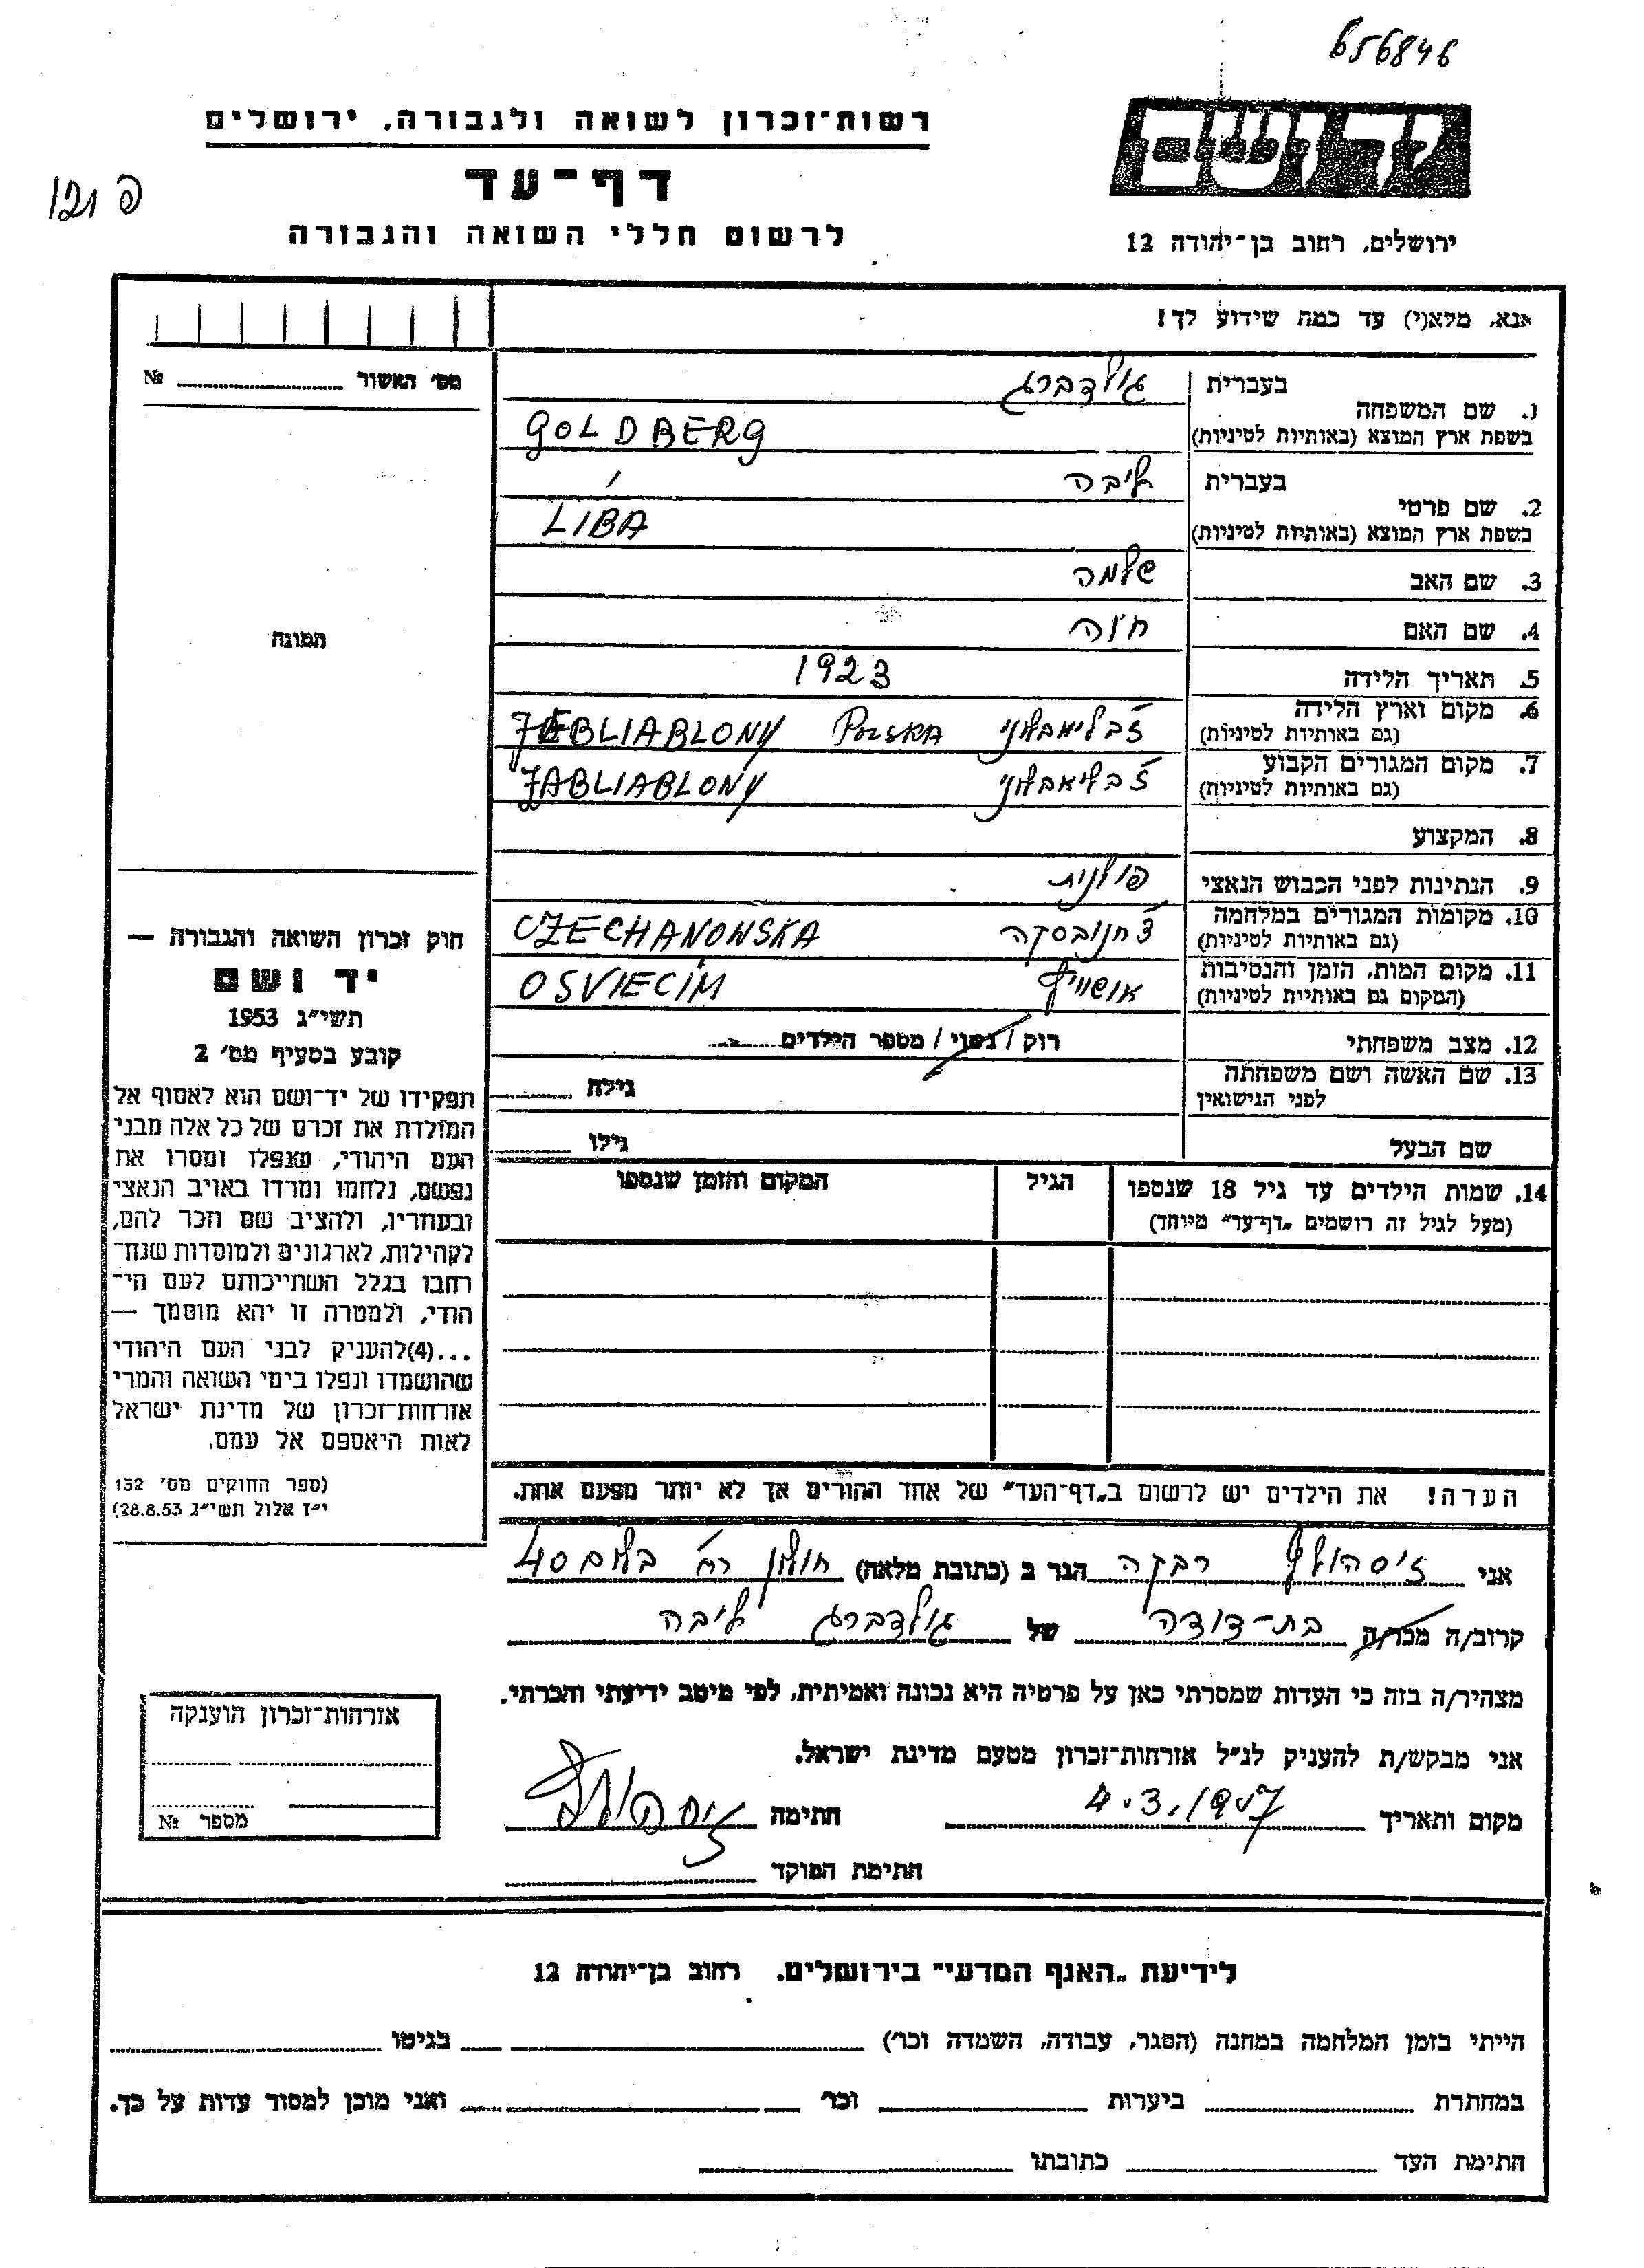 656846
רשות־זכרון לשואה ולגבורה, ירושלים
דף־עד
לרשום חללי השואה והגבורה
ירושלים, רחוב בן־יהודה 12
אנא, מלא(י) עד כמה שידוע לך!
מס' האשור № 
בעברית גולדברג
1. שם המשפחה
בשפת ארץ המוצא (באותיות לטיניות) GOLDBERG
בעברית ליבה
2. שם פרטי
בשפת ארץ המוצא (באותיות לטיניות) LIBA
3. שם האב שלמה
4. שם האם חוה
5. תאריך הלידה 1923
6. מקום וארץ הלידה
(גם באותיות לטיניות) ז'בליאבלוני POLSKA ZABLIABLONY
7. מקום המגורים הקבוע
(גם באותיות לטיניות) ז'בליאבלוני ZABLIABLONY
8. המקצוע
9. הנתינות לפני הכבוש הנאצי פולנית
10. מקומות המגורים במלחמה
(גם באותיות לטיניות) צ'חנובסקה CZECHANOWSKA
11. מקום המות, הזמן והנסיבות
(המקום גם באותיות לטיניות) אושוויץ OSVIECIM
12. מצב משפחתי רוק / נשוי / מספר הילדים
13. שם האשה ושם משפחתה
לפני הנישואין גילה
שם הבעל גילו
14. שמות הילדים עד גיל 18 שנספו
(מעל לגיל זה רושמים „דף־עד" מיוחד)
הגיל
המקום והזמן שנספו
הערה! את הילדים יש לרשום ב„דף־העד" של אחד ההורים אך לא יותר מפעם אחת.
תמונה
חוק זכרון השואה והגבורה —
יד ושם
תשי"ג 1953
קובע בסעיף מס' 2
תפקידו של יד־ושם הוא לאסוף אל
המולדת את זכרם של כל אלה מבני
העם היהודי, שנפלו ומסרו את
נפשם, נלחמו ומרדו באויב הנאצי
ובעוזריו, ולהציב שם וזכר להם,
לקהילות, לארגונים ולמוסדות שנח־
רחבו בגלל השתייכותם לעם הי־
הודי, ולמטרה זו יהא מוסמך —
...(4)להעניק לבני העם היהודי
שהושמדו ונפלו בימי השואה והמרי
אזרחות־זכרון של מדינת ישראל
לאות היאספם אל עמם.
(ספר החוקים מס' 132
י"ז אלול תשי"ג 28.8.53)
אני זיסהולץ רבקה הגר ב (כתובת מלאה) חולון רח' בלום 40
קרוב/ה מכר/ה בת-דודה של גולדברג ליבה
מצהיר/ה בזה כי העדות שמסרתי כאן על פרטיה היא נכונה ואמיתית, לפי מיטב ידיעתי והכרתי.
אני מבקש/ת להעניק לנ"ל אזרחות־זכרון מטעם מדינת ישראל.
מקום ותאריך חתימה זיסהולץ
חתימת הפוקד
אזרחות־זכרון הוענקה
מספר №
לידיעת „האגף המדעי" בירושלים, רחוב בן־יהודה 12
הייתי בזמן המלחמה במחנה (הסגר, עבודה, השמדה וכו') בגיטו
במחתרת ביערות וכו' ואני מוכן למסור עדות על כך.
חתימת העד כתובתו